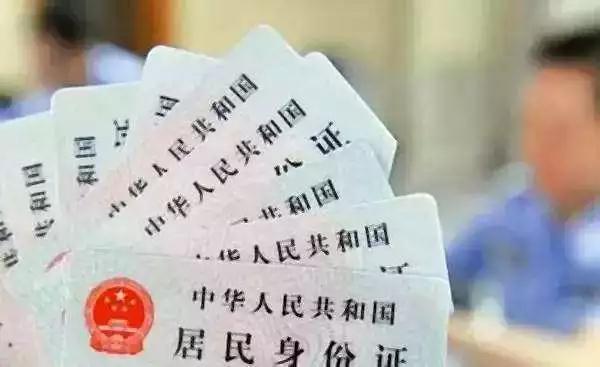 国
和国
中华人民共和国
中华人民共和国
证
共和国
中华人民共和国
中华人民共和国
居民身份证